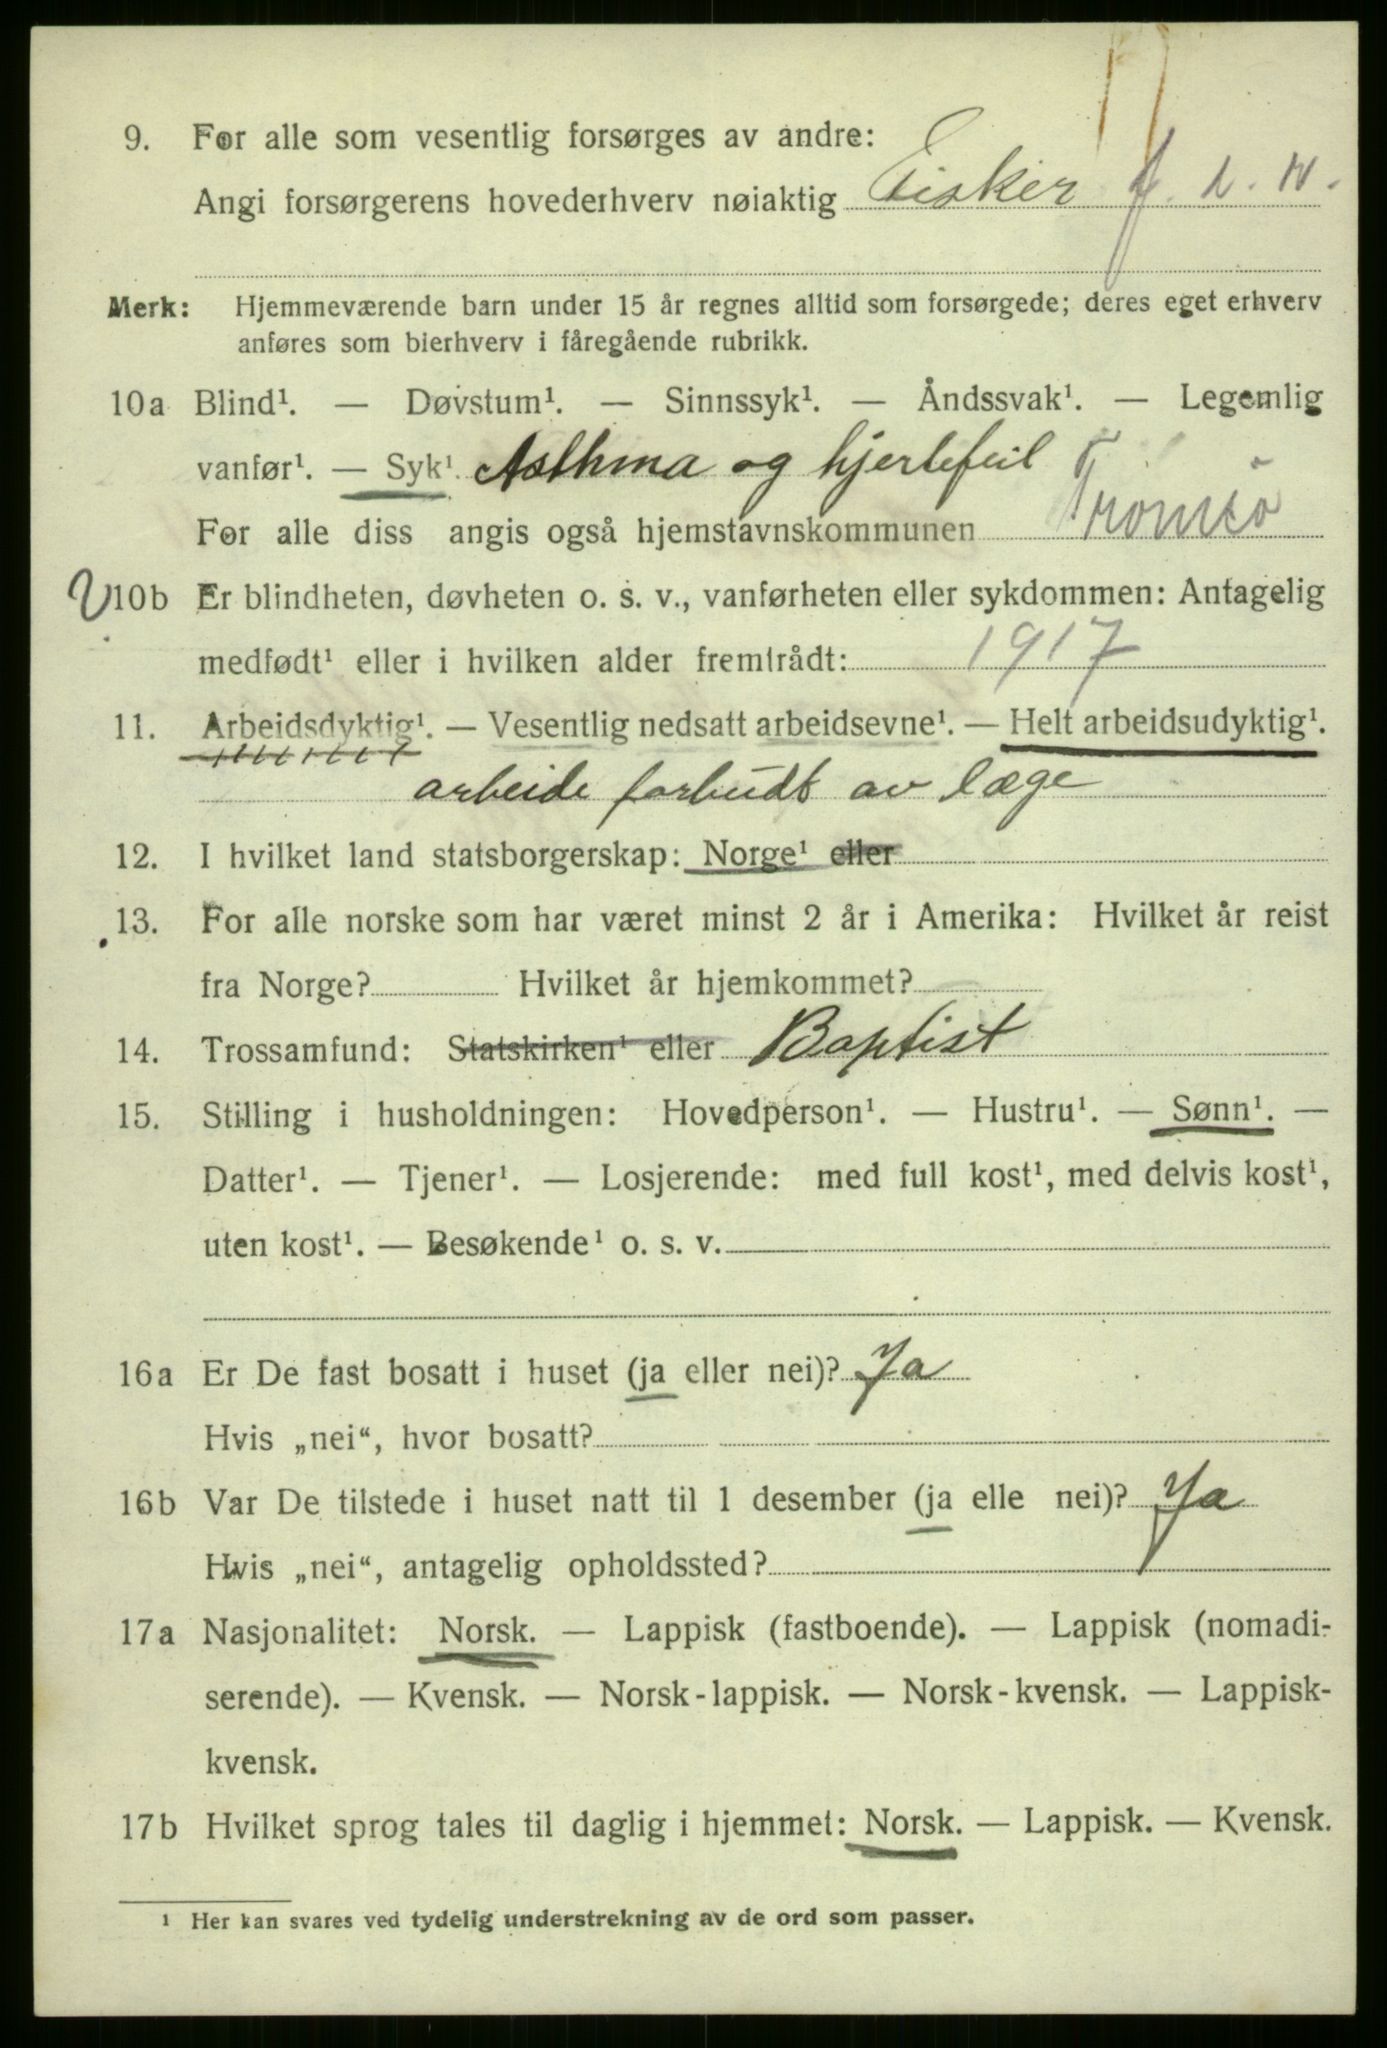 9. For alle som vesentlig forsørges av andre:
Angi forsørgerens hovederhverv nøiaktig Fisker
Merk: Hjemmeværende barn under 15 år regnes alltid som forsørgede; deres eget erhverv
anføres som bierhverv i fåregående rubrikk.
10a Blind¹. — Døvstum¹. — Sinnssyk¹. — Åndssvak¹. — Legemlig
vanfør¹. — Syk¹. Asthma og hjertefeil
For alle diss angis også hjemstavnskommunen Tromsø
V 10b Er blindheten, døvheten o. s. v., vanførheten eller sykdommen: Antagelig
medfødt¹ eller i hvilken alder fremtrådt: 1917
11. Arbeidsdyktig¹. — Vesentlig nedsatt arbeidsevne¹. — Helt arbeidsudyktig¹.
arbeide forbudt av læge
12. I hvilket land statsborgerskap: Norge¹ eller
13. For alle norske som har været minst 2 år i Amerika: Hvilket år reist
fra Norge? Hvilket år hjemkommet?
14. Trossamfund: Statskirken¹ eller Baptist
15. Stilling i husholdningen: Hovedperson¹. — Hustru¹. — Sønn¹. —
Datter¹. — Tjener¹. — Losjerende: med full kost¹, med delvis kost¹,
uten kost¹. — Besøkende¹ o. s. v.
16a Er De fast bosatt i huset (ja eller nei)? Ja
Hvis „nei“, hvor bosatt?
16b Var De tilstede i huset natt til 1 desember (ja elle nei)? Ja
Hvis „nei“, antagelig opholdssted?
17a Nasjonalitet: Norsk. — Lappisk (fastboende). — Lappisk (nomadi-
serende). — Kvensk. — Norsk-lappisk. — Norsk-kvensk. — Lappisk-
kvensk.
17b Hvilket sprog tales til daglig i hjemmet: Norsk. — Lappisk. — Kvensk.
¹ Her kan svares ved tydelig understrekning av de ord som passer.